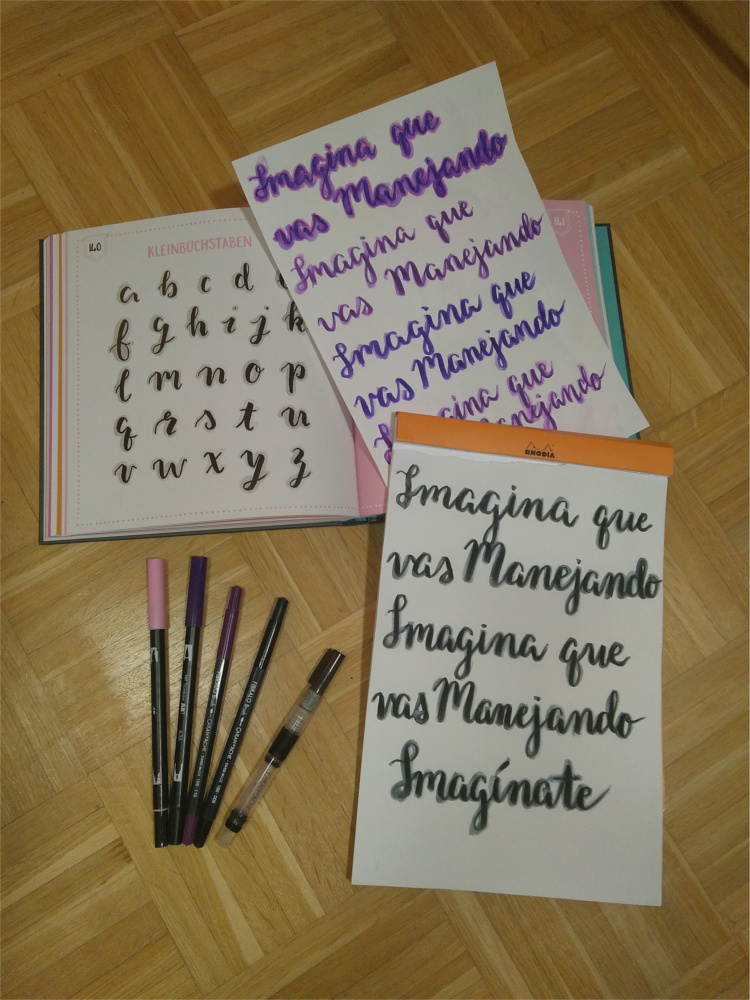 40
KLEINBUCHSTABEN
a b c d
f g h i j k
l m n o p
q r s t u
v w x y z
41
Imagina que
vas Manejando
Imagina que
vas Manejando
Imagina que
vas Manejando
RHODIA
Imagina que
vas Manejando
Imagina que
vas Manejando
Imagínate